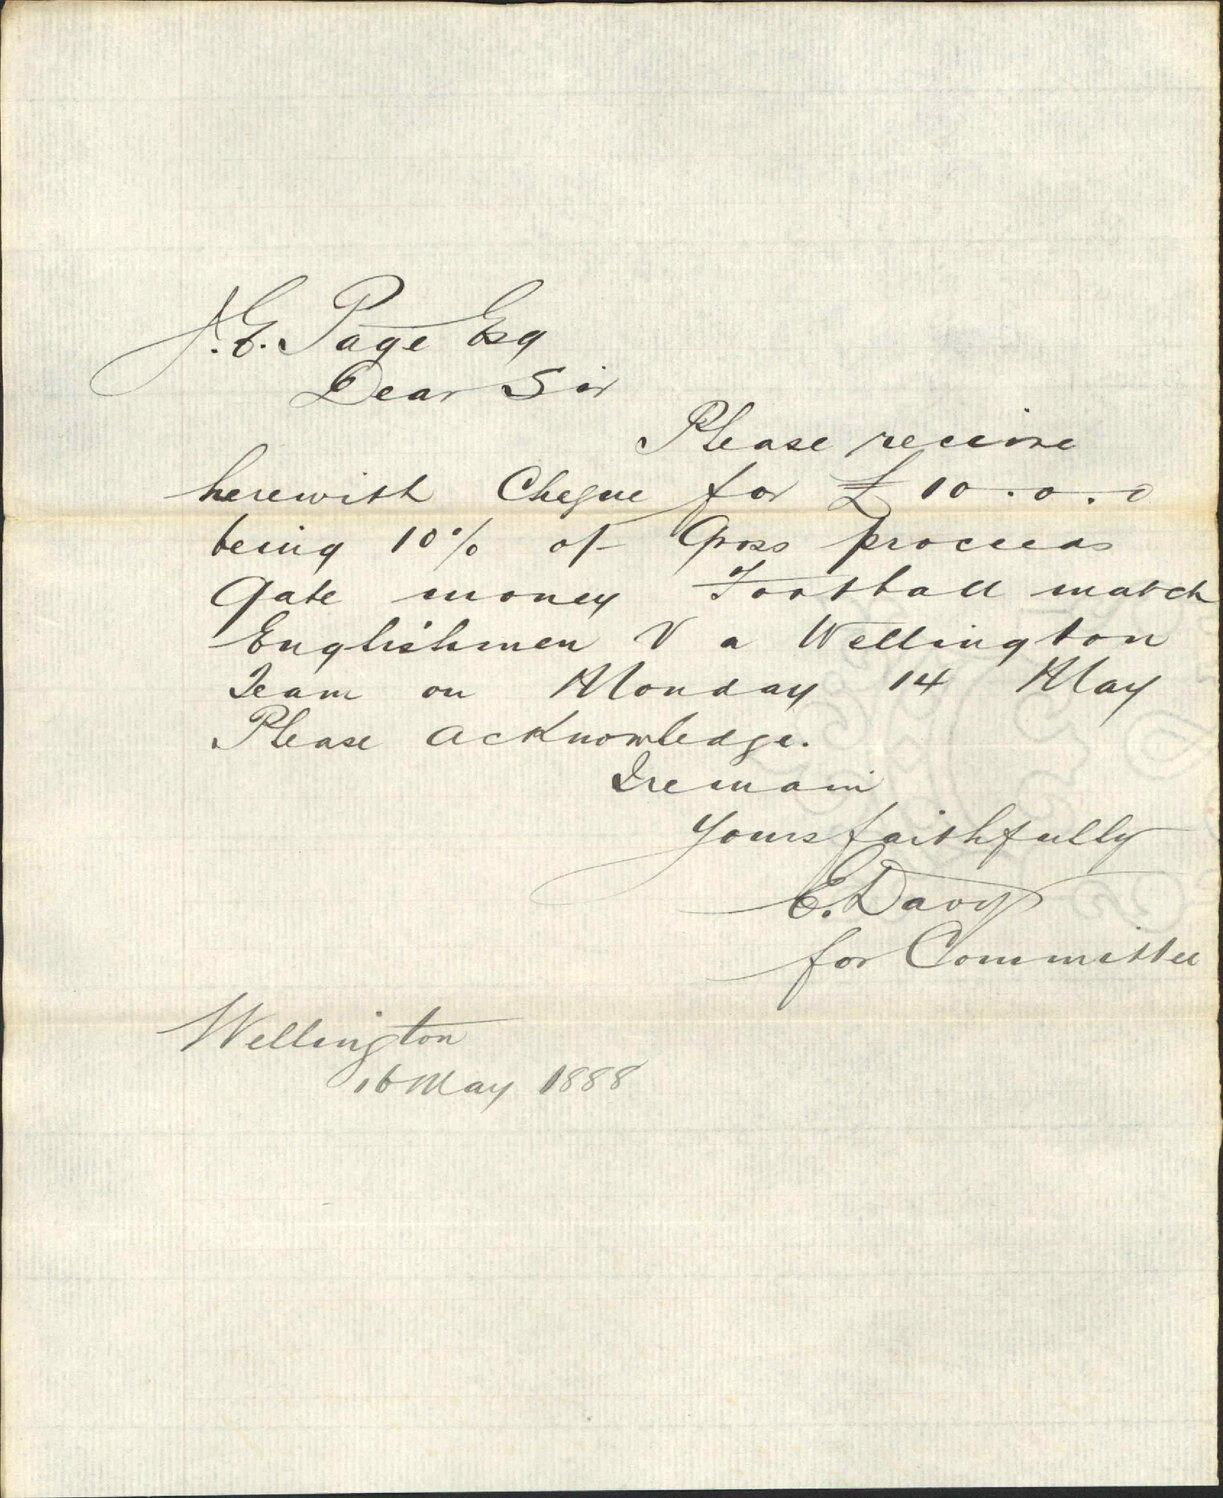 J.E. Page Esq
Dear Sir
Please receive
herewith Cheque for £10.0.0
being 10% of Gross proceeds
Gate money Football match
Englishmen V a Wellington
Team on Monday 14 May
Please acknowledge.
I remain
Yours faithfully
E. Davy
for Committee
Wellington
16 May 1888